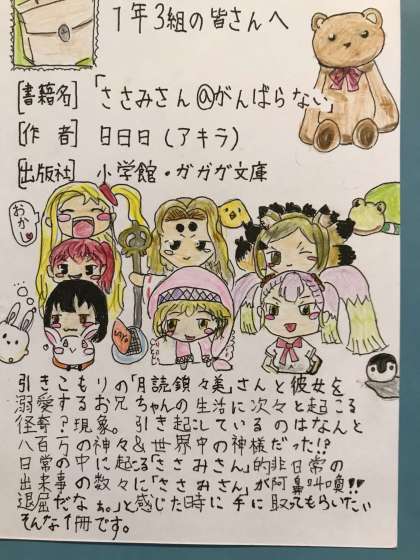 1年3組の皆さんへ
[書籍名]「ささみさん@がんばらない」
[作 者] 日日日(アキラ)
[出版社] 小学館・ガガガ文庫
おかし
引きこもりの「月読鎖々美」さんと彼女を
溺愛するお兄ちゃんの生活に次々と起こる
怪奇?現象。引き起こしているのはなんと
八百万の神々&世界中の神様だった!?
日常の中に起こる「ささみさん」的非日常の
出来事の数々に「ささみさん」が阿鼻叫喚!!
「退屈だなぁ。」と感じた時に手に取ってもらいたい
そんな1冊です。